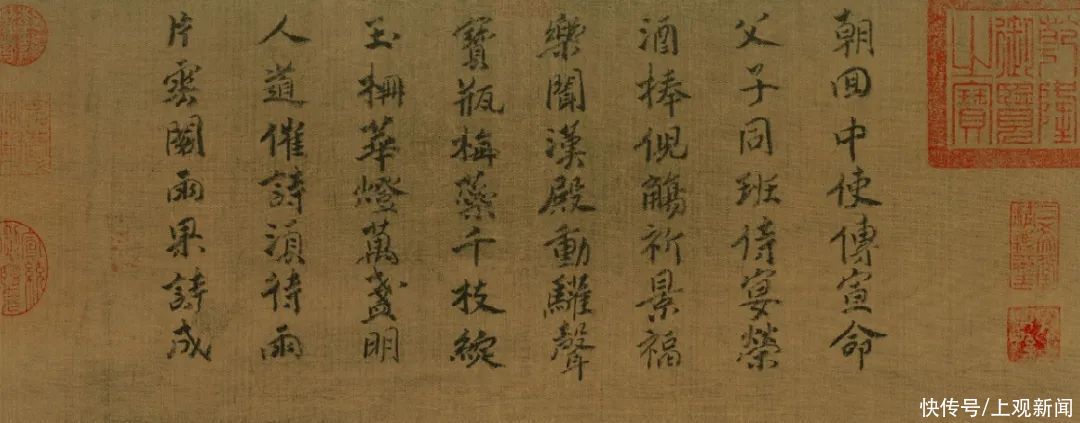 朝回中使傳宣命
父子同班侍宴榮
酒捧倪觴祈景福
樂聞漢殿動驩聲
寶瓶梅蘂千枝綻
玉柵華燈萬盞明
人道催詩須待雨
片雲閣雨果詩成
乾隆御覽之寶
快传号/上观新闻